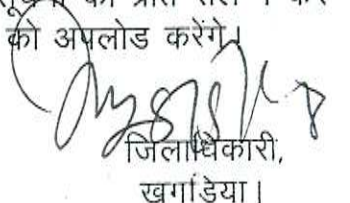 को अपलोड करेंगे।
जिलाधिकारी,
खगड़िया।